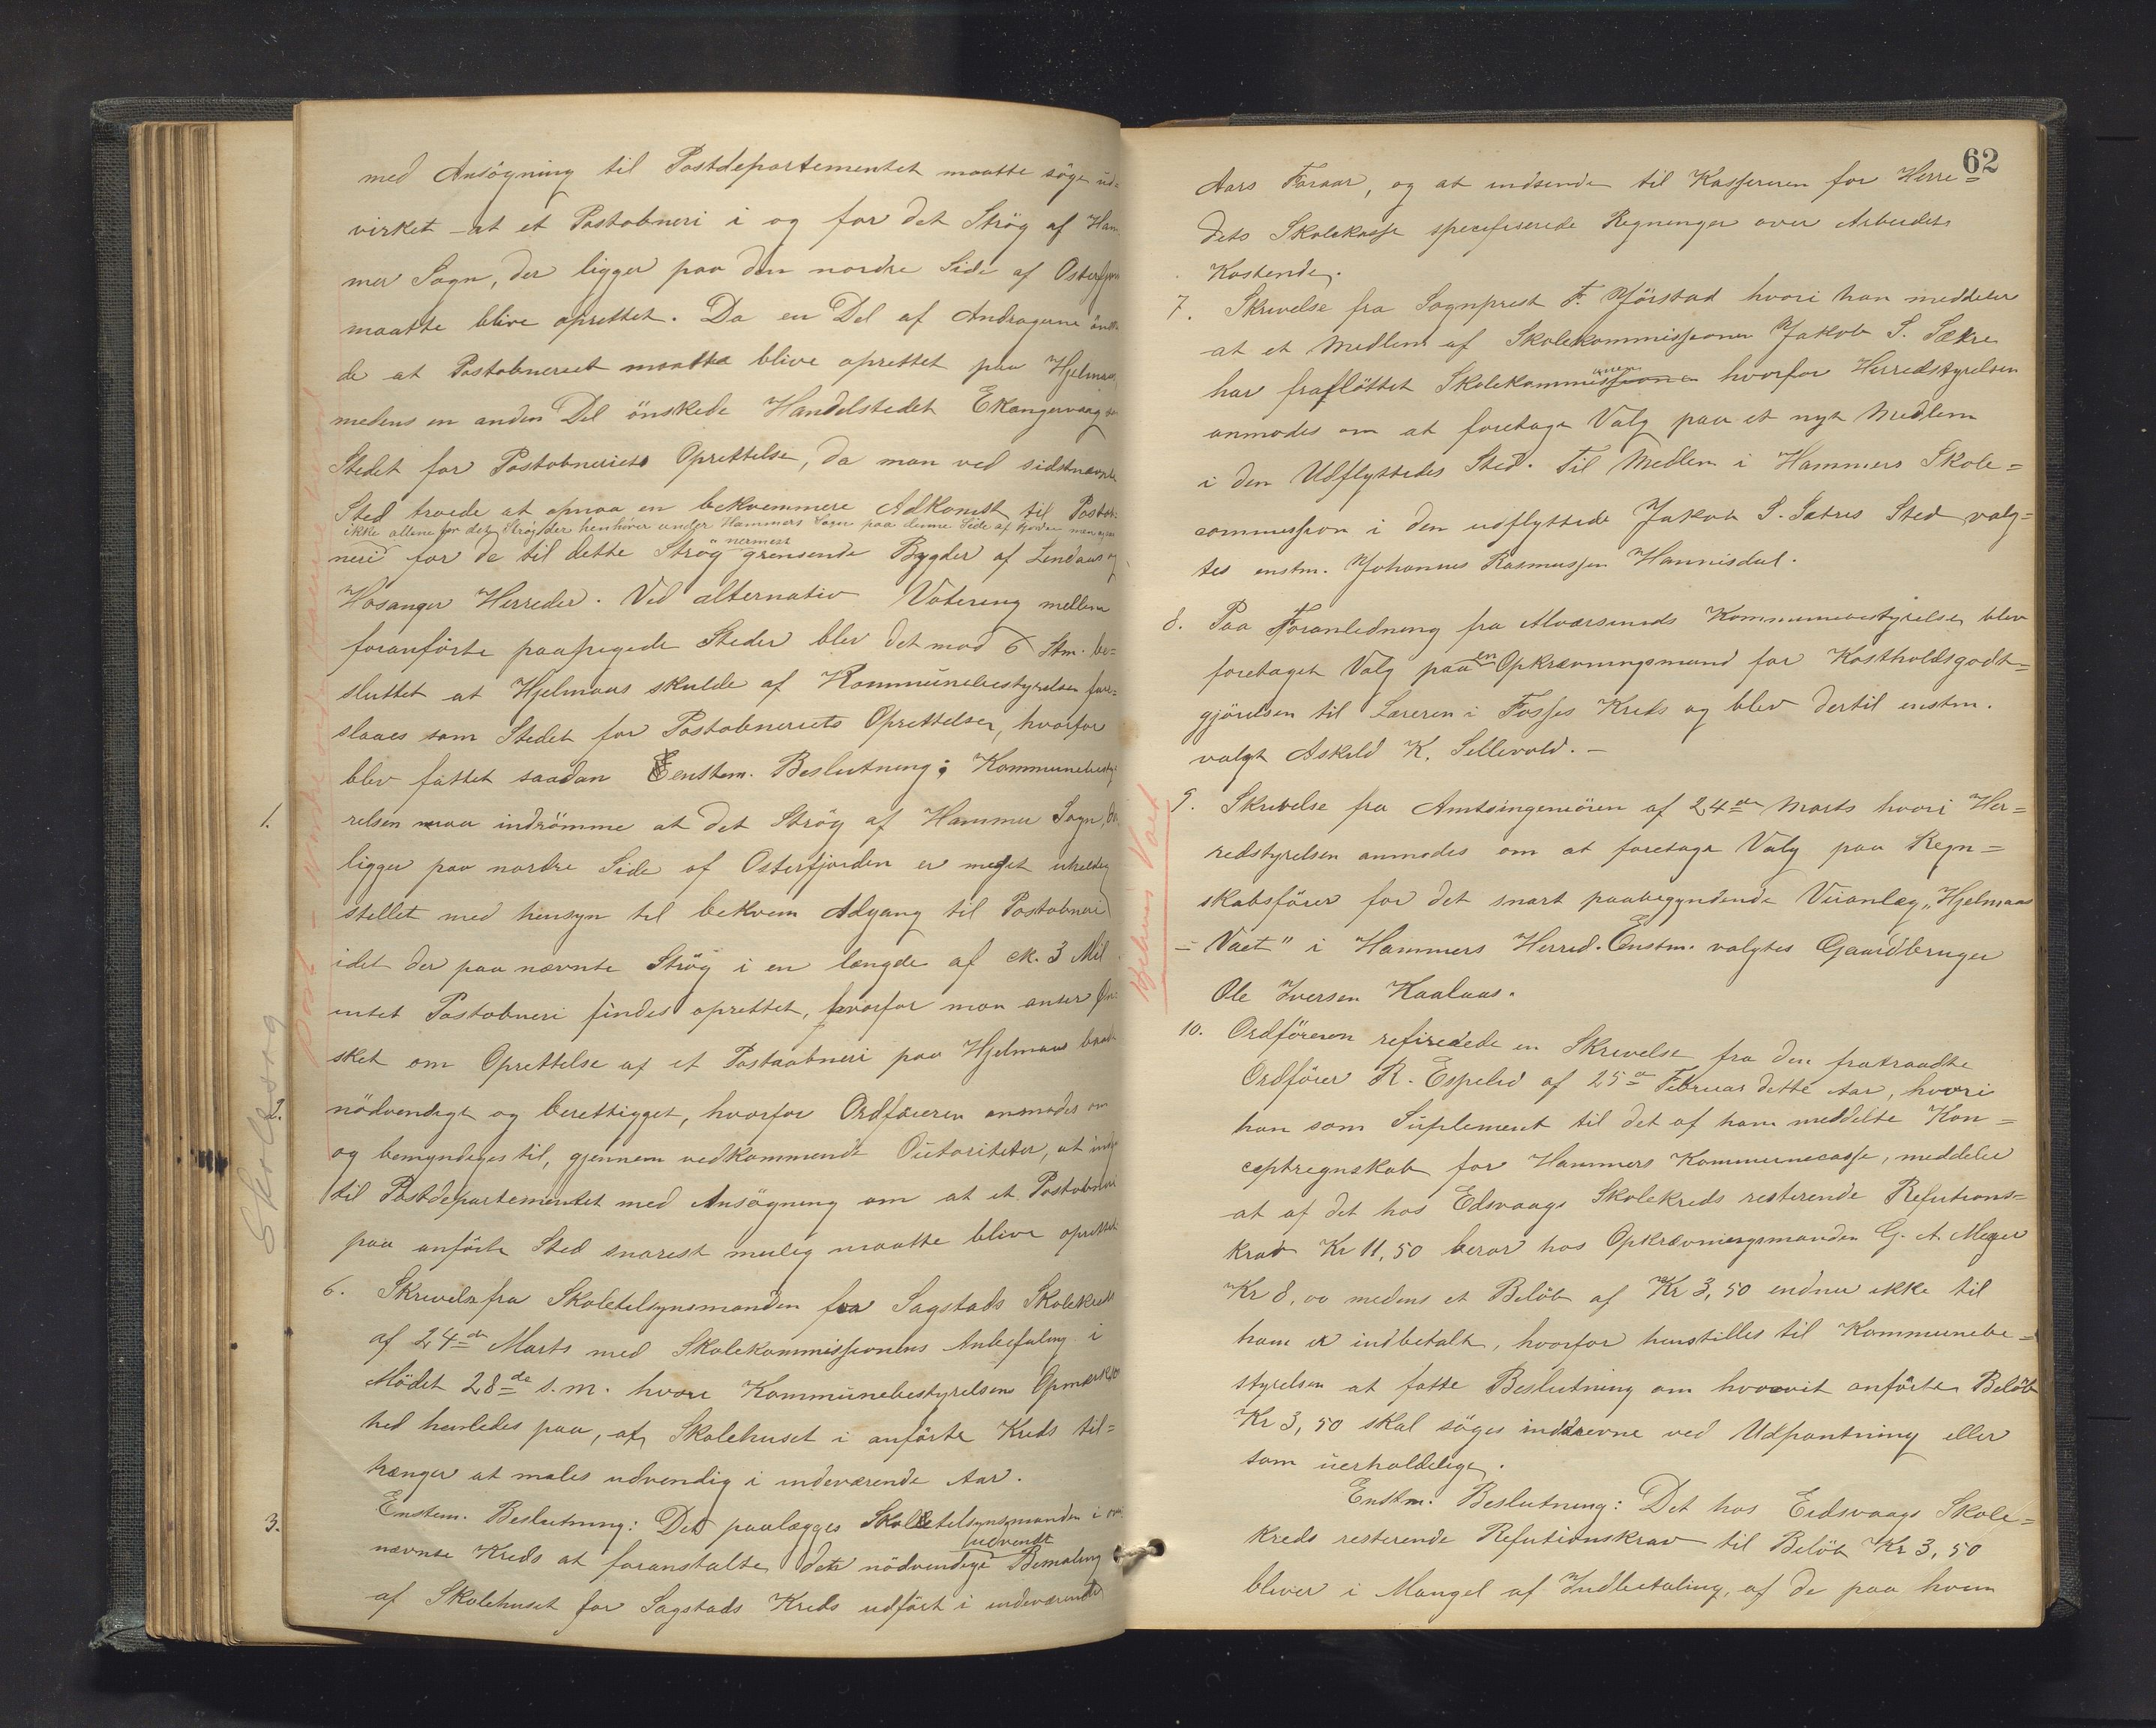 med Ansögning til Postdepartementet maatte söges ud=
virket - at et Postobneri i og for det Strög af Ham
mer Sogn, der ligger paa den nordre Side af Osterfjor
maatte blive oprettet. Da en Del af Andragerne önske
de at Postobneriet maatte blive oprettet paa Hjelmaas,
medens en anden Del önskede Handelstedet Ekangervaag
Stedet for Postobneriets Oprettelse, da man ved sidstnævnte
Sted troede at opnaa en bekvemmere Adkomst til Postob
ikke allene for det Strög der henhörer under Hammers Sogn paa denne Side af Fjorden men og
neri for de til dette Strög nermest grensende Bygder af Lindaas og
Hosanger Herreder. Ved alternativ Votering mellem
foranförte paapegede Steder blev det mod 6 Stm. be=
sluttet at Hjelmaas skulde af Kommunebestyrelsen fore=
slaaes som Stedet for Postobneriets Oprettelse, hvorfor
blev fattet saadan Eenstem. Beslutning: Kommunebesty
1. relsen maa indrömme at det Strög af Hammer Sogn, der
ligger paa nordre Side af Osterfjorden er meget uheldig
stillet med hensyn til bekvem Adgang til Postobneri
idet der paa nævnte Strög i en længde af ck. 3 Mil
intet Postobneri findes oprettet, hvorfor man anser Ön=
sket om Oprettelse af et Postaabneri paa Hjelmaas baade
2. nödvendigt og berettigget, hvorfor Ordföreren anmodes om
og bemyndiges til, gjennem vedkommende Outoriteter, at indgaa
til Postdepartementet med Ansögning om at et Postobneri
paa anförte Sted snarest mulig maatte blive oprettet
Skolesag
6. Skrivelse fra Skoletilsynsmanden fra Sagstads Skolekreds
af 24de Marts med Skolekommissionens Anbefaling i
Mödet 28de s.m. hvori Kommunebestyrelsens Opmærksom
hed henledes paa, at Skolehuset i anförte Kreds til=
trænger at males udvendig i indeværende Aar.
3. Enstem. Beslutning: Det paalægges Skoletilsynsmanden i om
nævnte Kreds at foranstalte dets nödvendige udvendt Bemaling
af Skolehuset for Sagstads Kreds udfört i indeværende
62
Aars Foraar, og at indsende til Kassereren for Herre=
dets Skolekasse specifiserede Regninger over Arbeidets
Kostende.
7. Skrivelse fra Sognprest F. Hörstad hvori han meddeler
at et Medlem af Skolekommissionen Jakob S. Sætre
har fraflöttet Skolekommissionen hvorfor Herredstyrelsen
anmodes om at foretage Valg paa et nyt Medlem
i den Udflyttedes Sted. Til Medlem i Hammers Skole=
commission i den udflyttede Jakob S. Sætres Sted valg=
tes enstm. Johannes Rasmussen Hannisdal.
8. Paa Foranledning fra Alværsunds Kommunebestyrelse blev
foretaget Valg paa en Opkrævningsmand for Kostholdsgodt=
gjörelsen til Læreren i Fosses Kreds og blev dertil enstm.
valgt Askild K. Sellevold. -
9. Skrivelse fra Amtsingeniören af 24de Marts hvori Her=
redstyrelsen anmodes om at foretage Valg paa Regn=
skabsförer for det snart paabegyndende Veianlæg „Hjelmaas
= Vaet" i Hammers Herred. Enstm. valgtes Gaardbruger
Ole Iversen Kaalaas.
10. Ordföreren refirerede en Skrivelse fra den fratraadte
Ordförer R. Espelid af 25de Februar dette Aar, hvori
han som Suplement til det af ham meddelte Kon=
ceptregnskab for Hammers Kommunecasse, meddeler
at af det hos Edsvaags Skolekreds resterende Refutions=
krav Kr 11,50 beror hos Opkrævningsmanden G. A. Meyer
Kr 8,00 medens et Belöb af Kr 3,50 endnu ikke til
ham er indbetalt, hvorfor henstilles til Kommunebe=
styrelsen at fatte Beslutning om hvorvit anförte Belöb
Kr 3,50 skal söges inddrevne ved Udpantning eller
som uerholdelige.
Enstm. Beslutning: Det hos Eidsvaags Skole=
kreds resterende Refutionskrav til Belöb Kr 3,50
bliver i Mangel af Indbetaling, af de paa hvem